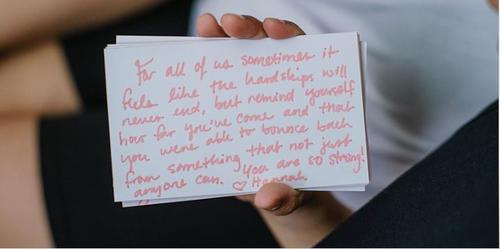 For all of us sometimes it
feels like the hardships will
never end, but remind yourself
how far you've come and that
you were able to bounce back
from something that not just
anyone can. You are so strong!
♡ Hannah